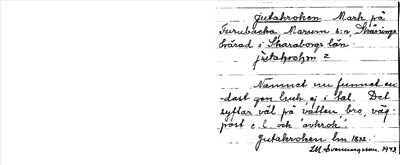 Jutakroken Mark på
Furubacka, Marum s:n, Skånings
härad i Skaraborgs län.
Namnet nu funnet en-
dast gen. buch, ej i tal. Det
syftar väl på vatten bro, väg-
post e. l. och "avkrok".
Jutakroken lm 1832.
Svenningsson 1943